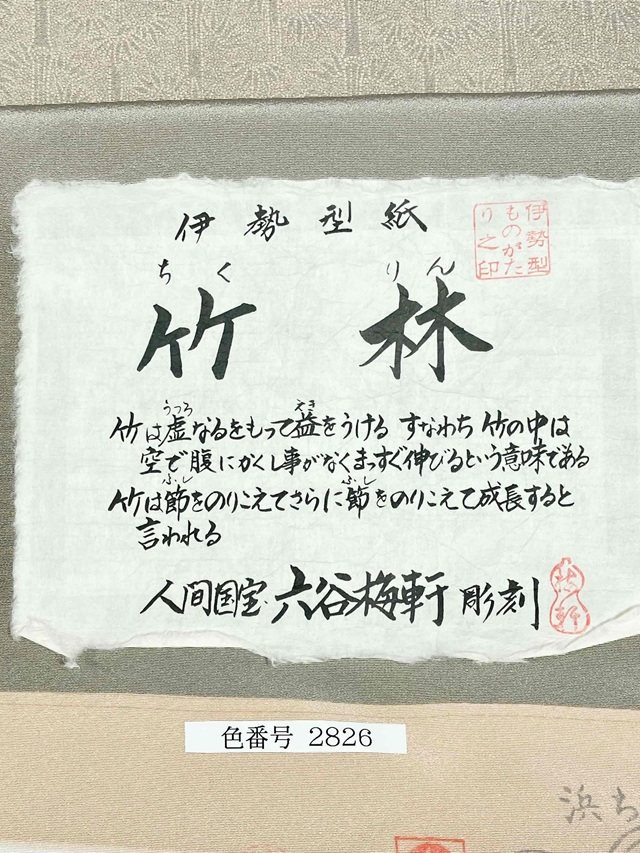 伊勢型紙
伊勢型
ものがた
り之印
ちく りん
竹林
うつろ えき
竹は虚なるをもって益をうける すなわち 竹の中は
空で腹にかくし事がなくまっすぐ伸びるという意味である
ふし ふし
竹は節をのりこえてさらに節をのりこえて成長すると
言われる
人間国宝 六谷梅軒 彫刻
色番号 2826
浜ち